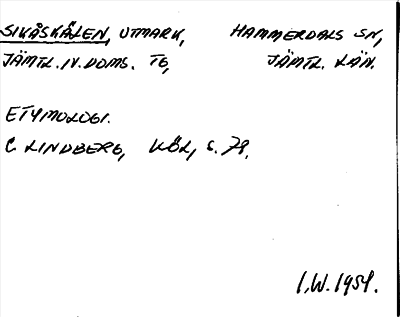 SIKÅSKÅLEN, UTMARK, HAMMERDALS SN,
JÄMTL. N. DOMS. TG, JÄMTL. LÄN.
ETYMOLOGI.
C LINDBERG, KÖL, S. 79.
I.W. 1954.